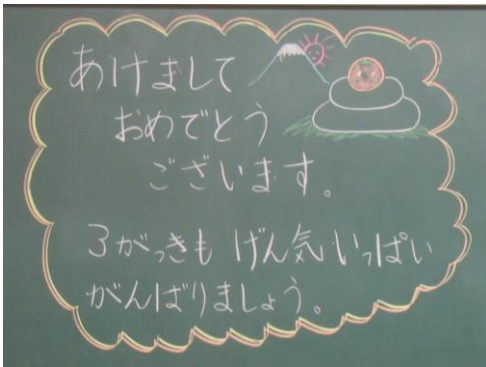 あけまして
おめでとう
ございます。
3がっきも げん気いっぱい
がんばりましょう。